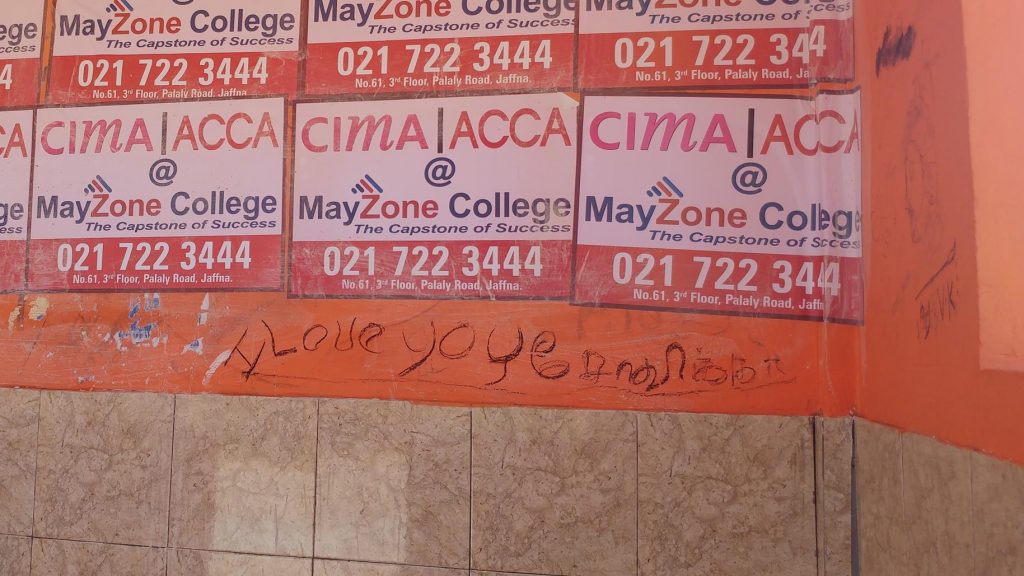 MayZone College
The Capstone of Success
021 722 3444
No.61, 3rd Floor, Palaly Road, Jaffna.
MayZone College
The Capstone of Success
021 722 3444
No.61, 3rd Floor, Palaly Road, Jaffna.
MayZone
The Capstone of
021 722 344
No.61, 3rd Floor, Palaly Road,
CIMA|ACCA
@
MayZone College
The Capstone of Success
021 722 3444
No.61, 3rd Floor, Palaly Road, Jaffna.
CIMA|ACCA
@
MayZone College
The Capstone of Success
021 722 3444
No.61, 3rd Floor, Palaly Road, Jaffna.
CIMA|ACCA
@
MayZone College
The Capstone of Success
021 722 344
No.61, 3rd Floor, Palaly Road,
Love yoye